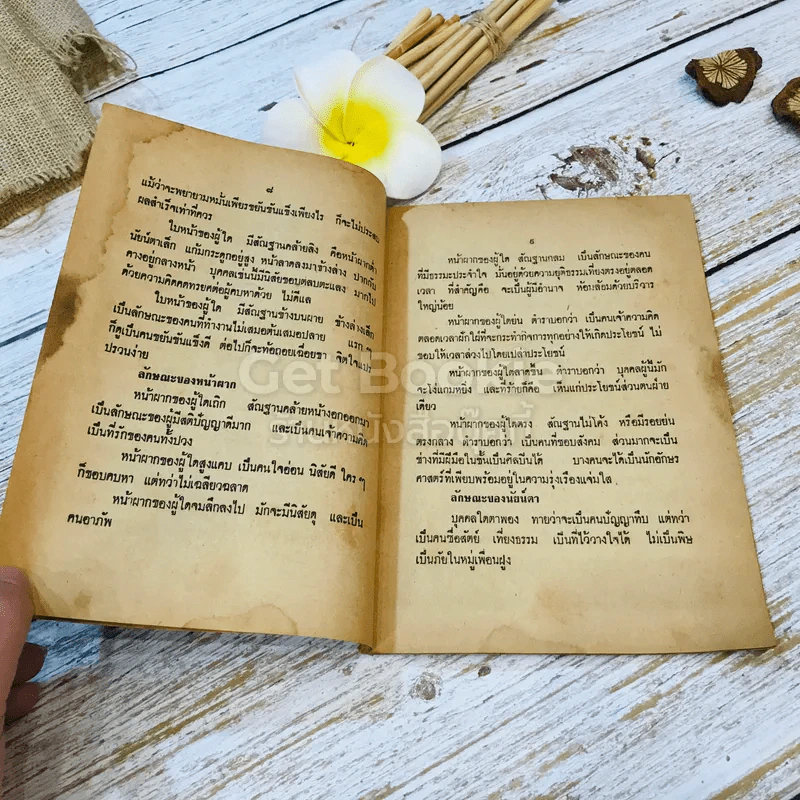 ๘
แม้ว่าจะพยายามหมั้นเพียรขยันขันแข็งเพียงไร ก็จะไม่ประสบ
ผลสำเร็จเท่าที่ควร
ใบหน้าของผู้ใด มีสัณฐานคล้ายลิง คือหน้าผากต่ำ
นัยน์ตาเล็ก แก้มกระดูกอยู่สูง หน้าลาดลงมาข้างล่าง ปากกับ
คางอยู่กลางหน้า บุคคลเช่นนี้มีนิสัยชอบตลบตะแลง มากไป
ด้วยความคิดคดทรยศต่อผู้คบหาด้วย ไม่ดีแล
ใบหน้าของผู้ใด มีสัณฐานข้างบนผาย ข้างล่างเล็ก
เป็นลักษณะของคนที่ทำงานไม่เสมอต้นเสมอปลาย แรก ๆ
ก็ดูเป็นคนขยันขันแข็งดี ต่อไปก็จะท้อถอยเฉื่อยชา จิตใจแปร
ปรวนง่าย
ลักษณะของหน้าผาก
หน้าผากของผู้ใดเถิก สัณฐานคล้ายหน้างอกออกมา
เป็นลักษณะของผู้มีสติปัญญาดีมาก และเป็นคนเจ้าความคิด
เป็นที่รักของคนทั้งปวง
หน้าผากของผู้ใดสูงแคบ เป็นคนใจอ่อน นิสัยดี ใคร ๆ
ก็ชอบคบหา แต่ทว่าไม่เฉลียวฉลาด
หน้าผากของผู้ใดจมลึกลงไป มักจะมีนิสัยดุ และเป็น
คนอาภัพ
๙
หน้าผากของผู้ใด สัณฐานกลม เป็นลักษณะของคน
ที่มีธรรมะประจำใจ มั่นอยู่ด้วยความยุติธรรมเที่ยงตรงอยู่ตลอด
เวลา ที่สำคัญคือ จะเป็นผู้มีอำนาจ ห้อมล้อมด้วยบริวาร
ใหญ่น้อย
หน้าผากของผู้ใดย่น ตำราบอกว่า เป็นคนเจ้าความคิด
ตลอดเวลาฝักใฝ่ที่จะกระทำกิจการทุกอย่างให้เกิดประโยชน์ ไม่
ชอบให้เวลาล่วงไปโดยเปล่าประโยชน์
หน้าผากของผู้ใดลาดชัน ตำราบอกว่า บุคคลผู้นี้มัก
จะโง่แกมหยิ่ง และที่ร้ายก็คือ เห็นแก่ประโยชน์ส่วนตนฝ่าย
เดียว
หน้าผากของผู้ใดตรง สัณฐานไม่โค้ง หรือมีรอยย่น
ตรงกลาง ตำราบอกว่า เป็นคนที่ชอบสังคม ส่วนมากจะเป็น
ช่างที่มีฝีมือในชั้นเป็นศิลปินได้ บางคนจะได้เป็นนักอักษร
ศาสตร์ที่เพียบพร้อมอยู่ในความรุ่งเรืองแจ่มใส
ลักษณะของนัยน์ตา
บุคคลใดตาพอง ทายว่าจะเป็นคนปัญญาทึบ แต่ทว่า
เป็นคนซื่อสัตย์ เที่ยงธรรม เป็นที่ไว้วางใจได้ ไม่เป็นพิษ
เป็นภัยในหมู่เพื่อนฝูง
Get Bookie
ร้านหนังสือเก็ตบุ๊คกี้